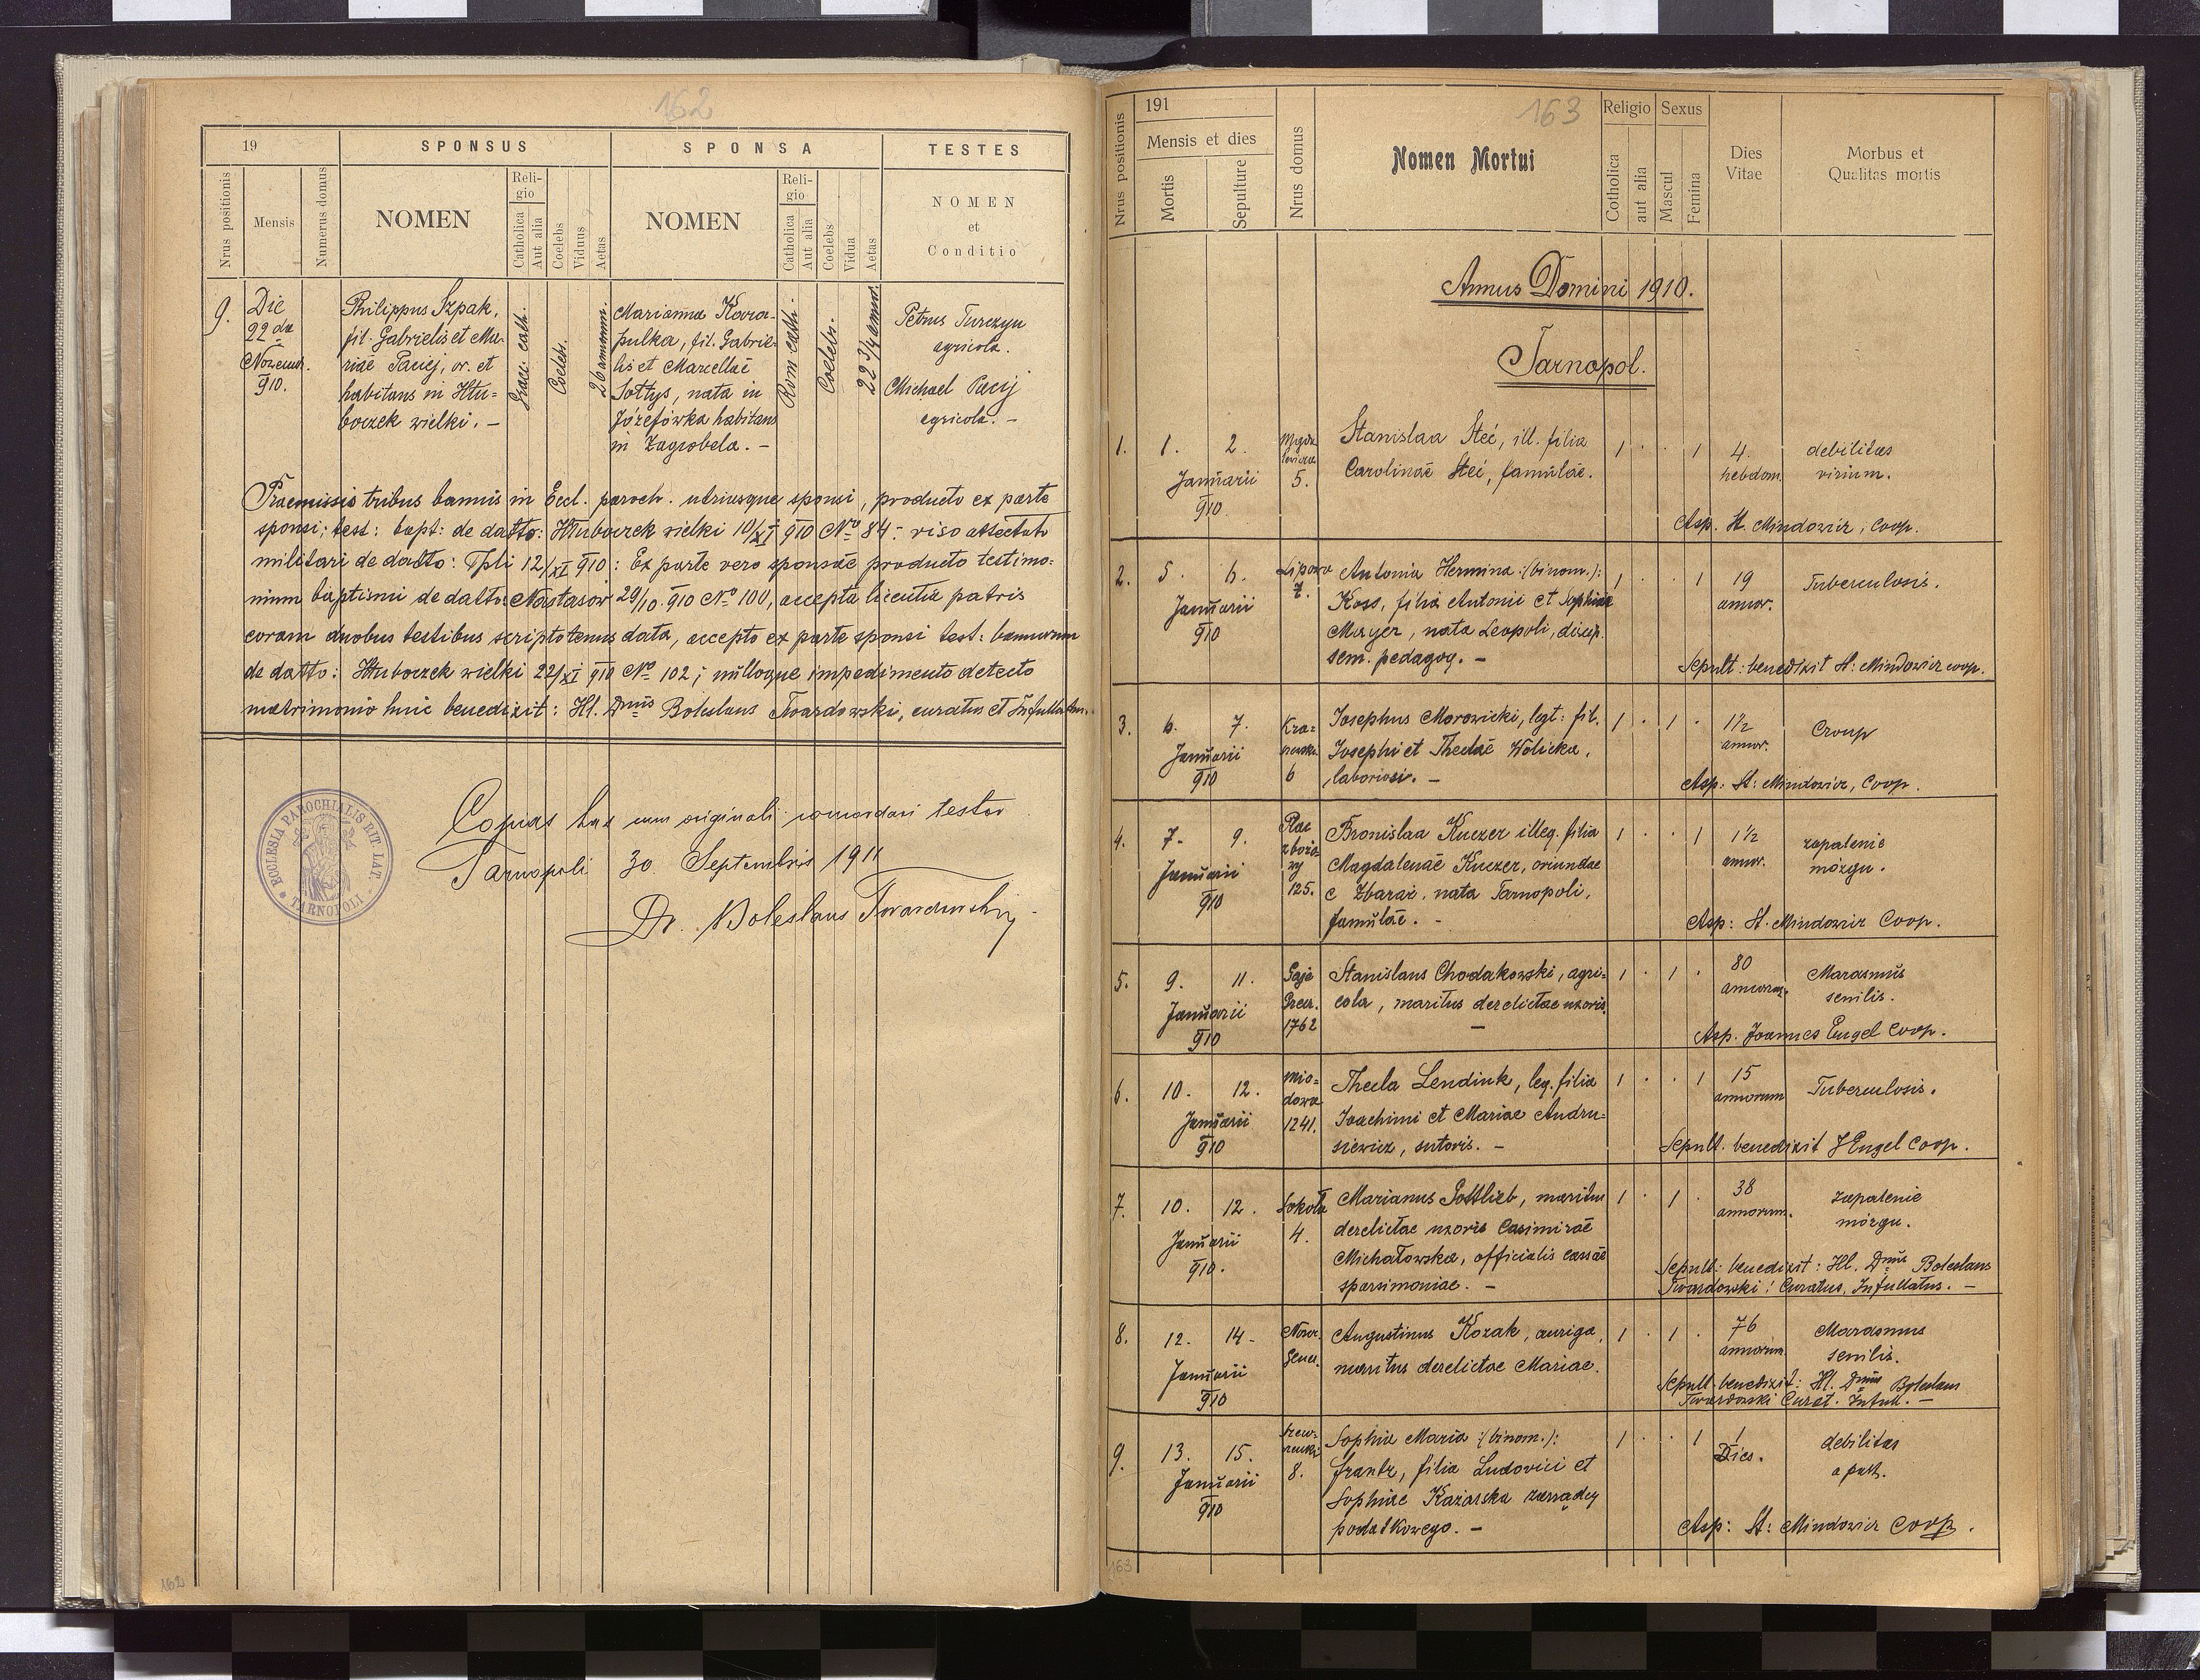 162
19
SPONSUS
SPONSA
TESTES
Nrus positionis
Mensis
Numerus domus
NOMEN
Reli-
gio
Catholica
Aut alia
Coelebs
Viduus
Aetas
NOMEN
Reli-
gio
Catholica
Aut alia
Coelebs
Vidua
Aetas
NOMEN
et
Conditio
9.
Die
22 da
Novembr.
910.
Philippus Szpak,
fil. Gabrielis et Ma-
riae Paciej, or. et
habitans in Hłu-
boczek wielki. –
Graec. cath.
Coelebs.
26 annorum.
Marianna Kowa-
pulka, fil. Gabrie-
lis et Marcellae
Sołtys, nata in
Józefówka habitans
in Zagrobela. –
Rom. cath.
Coelebs.
22 3/4 annor.
Petrus Turczyn
agricola.
Michael Pacij
agricola. –
Praemissis tribus bannis in Eccl. paroch. utriusque sponsi, producto ex parte
sponsi: test: bapt: de datto: Hłuboczek wielki 10/XI 910 No 84: viso attestato
militari de datto: Tpli 12/XI 910: Ex parte vero sponsae producto testimo-
nium baptismi de datto Nastasów 29/10. 910 No 100, accepta licentia patris
coram duobus testibus scriptotenus data, accepto ex parte sponsi test: bannorum
de datto: Hłuboczek wielki 22/XI 910 No 102; nulloque impedimento detecto
matrimonio huic benedixit: Hl. Dnus Boleslaus Twardowski, curatus et Infullatus.
ECCLESIA PAROCHIALIS RIT. LAT.
TARNOPOLI
Copias has cum originali concordari testor
Tarnopoli 30 Septembris 1911
Dr. Boleslaus Twardowski
162
163
Nrus positionis
191
Mensis et dies
Mortis
Sepulture
Nrus domus
Nomen Mortui
Religio
Cotholica
aut alia
Sexus
Mascul
Femina
Dies
Vitae
Morbus et
Qualitas mortis
Annus Domini 1910.
Tarnopol.
1. 1. 2.
Januarii
910.
5.
Stanislaa Steć, ill. filia
Carolinae Steć, famulae.
1 . . 1
4.
hebdom.
debilitas
virium.
Asp. St. Mindowicz, Coop.
2. 5. 6.
Januarii
910
Lipowa
7.
Antonia Hermina :(binom.):
Koss, filia Antonii et Sophiae
Mayer, nata Leopoli, discip.
sem. pedagog. –
1 . . 1
19
annor.
Tuberculosis.
Sepult: benedixit St: Mindowicz coop.
3. 6. 7.
Januarii
910
6
Josephus Morowicki, legt: fil.
Josephi et Theclae Wolicka,
laboriosi. –
1 . 1 .
1 1/2
annor.
Croup
Asp: St: Mindowicz, Coop.
4. 7. 9.
Januarii
910
Plac
zbożo-
wy
125.
Bronislaa Kuczer illeg. filia
Magdalenae Kuczer, oriundae
e Zbaraż, nata Tarnopoli,
famulae. –
1 . . 1
1 1/2
annor.
zapalenie
mózgu.
Asp: St. Mindowicz Coop.
5. 9. 11.
Januarii
910
Gaje
1762
Stanislaus Chodakowski, agri-
cola, maritus derelictae uxoris.
–
1 . 1 .
80
annorum.
Marasmus
senilis.
Asp. Joannes Engel Coop.
6. 10. 12.
Januarii
910
Mio-
dowa
1241.
Thecla Lendiuk, leg. filia
Joachimi et Mariae Andru-
siewicz, sutoris. –
1 . . 1
15
annorum
Tuberculosis.
Sepult. benedixit J Engel Coop.
7. 10. 12.
Januarii
910.
Sokoła
4.
Marianus Gottlieb, maritus
derelictae uxoris Casimirae
Michałowska, officialis cassae
parsimoniae. –
1 . 1 .
38
annorum.
zapalenie
mózgu.
Sepult: benedixit: Hl. Dnus Boleslaus
Twardowski: Curatus, Infullatus. –
8. 12. 14.
Januarii
910
Augustinus Kozak, auriga,
maritus derelictae Mariae.
1 . 1 .
76
annorum
Marasmus
senilis.
Sepult. benedixit: Hl. Dnus Boleslaus
Twardowski Curat. Infull. –
9. 13. 15.
Januarii
910
8.
Sophia Maria :(binom.):
Frantz, filia Ludovici et
Sophiae Każarska zarządcy
podatkowego. –
1 . . 1
1
Dies.
debilitas
a part.
Asp: St: Mindowicz Coop.
163